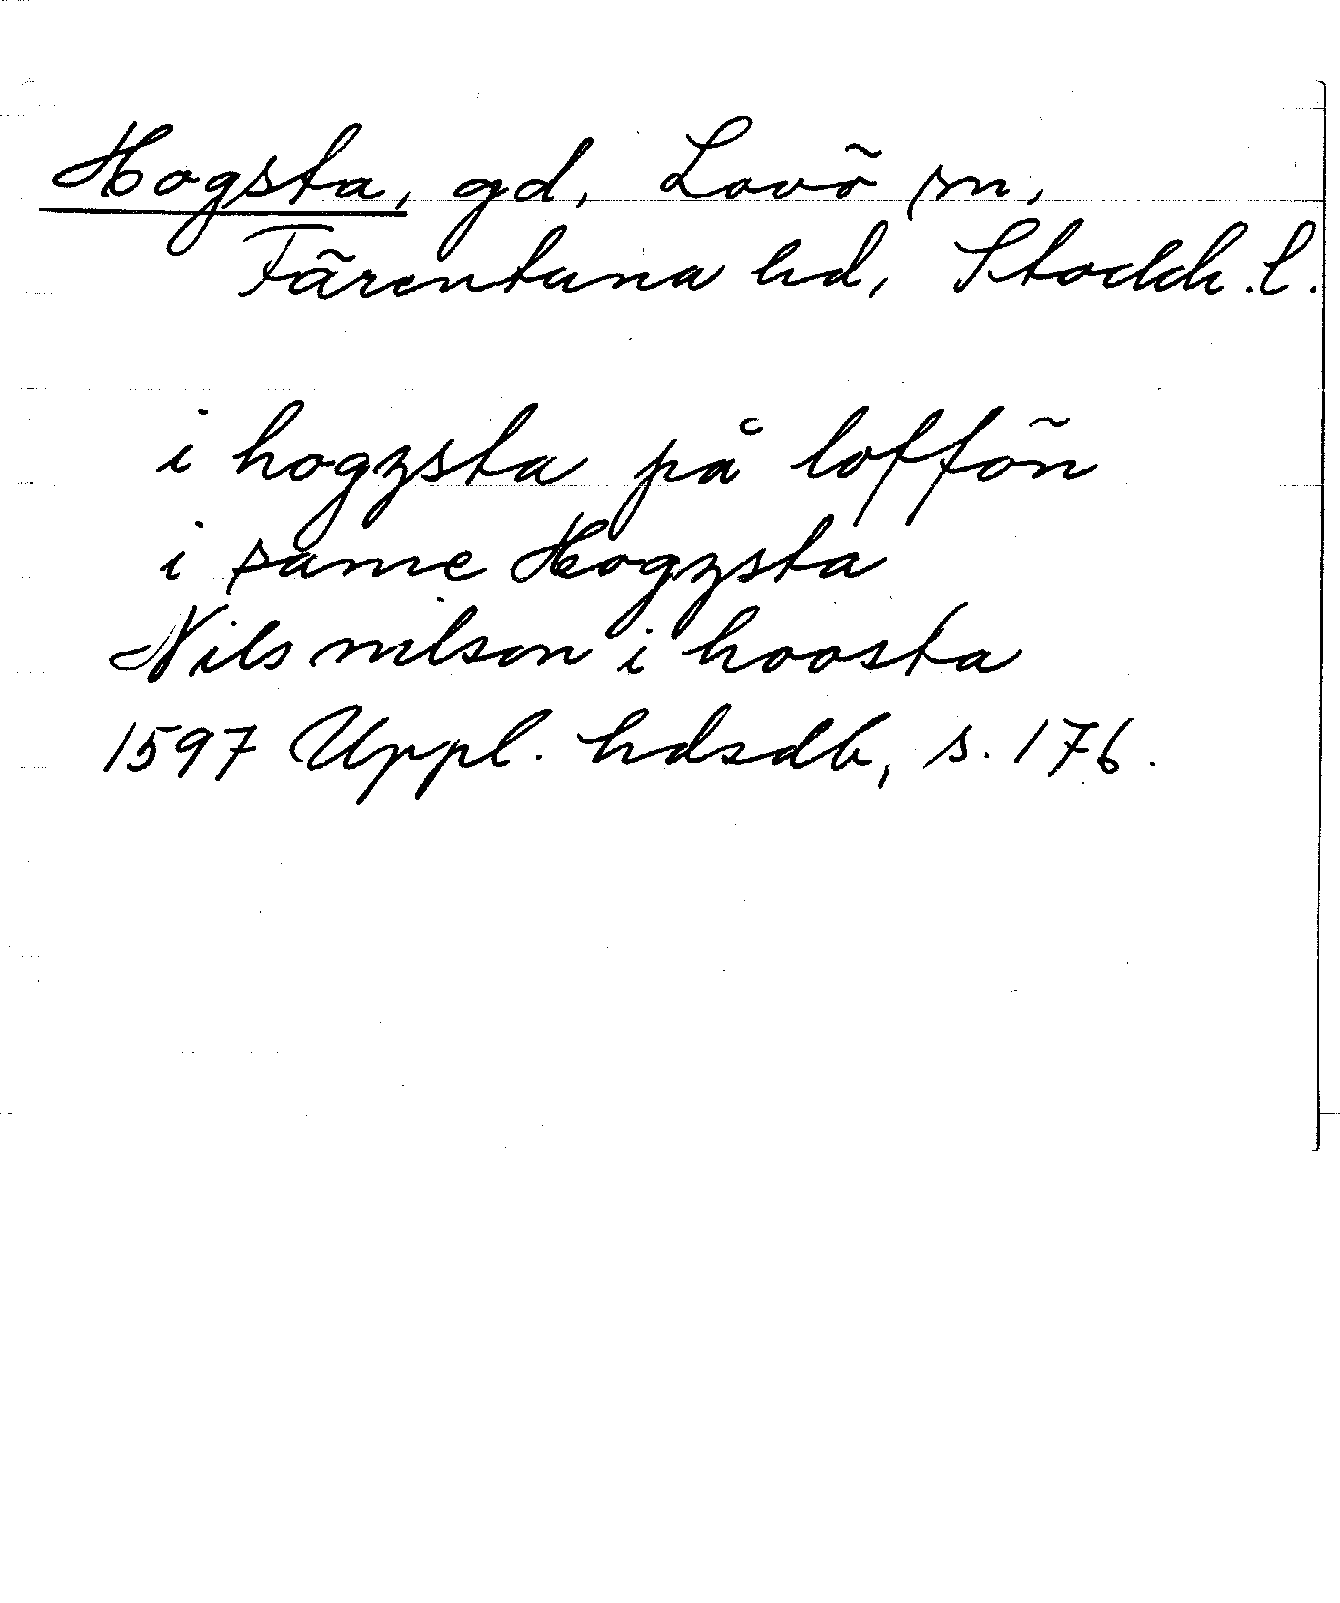 Hogsta, gd, Lovö sn,
Färentuna hd, Stockh. l.
i hogzsta på loffön
i same Hogzsta
Nils nilson i hoosta
1597 Uppl. hdsdb, s. 176.